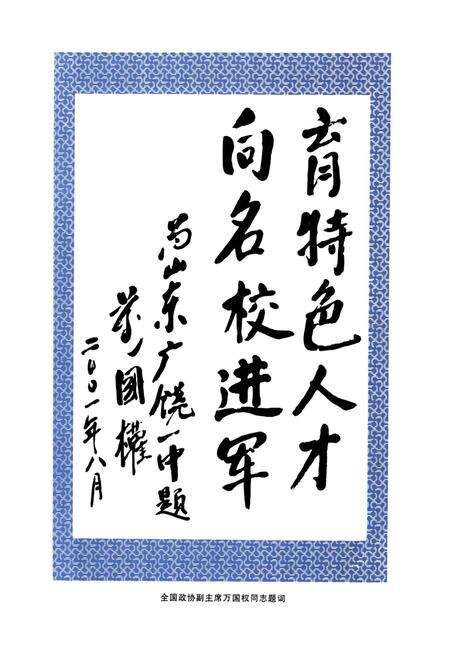 育特色人才
向名校进军
为山东广饶一中题
萬國權
二〇〇一年八月
全国政协副主席万国权同志题词